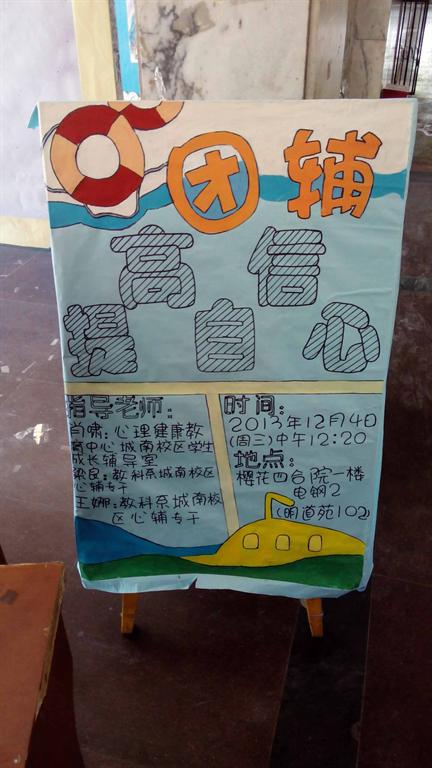 团辅
高信
提自心
指导老师:
肖啸:心理健康教
育中心城南校区学生
成长辅导室
梁良:教科系城南校区
心辅专干
王娜:教科系城南校
区心辅专干
时间:
2013年12月4日
(周三)中午12:20
地点:
樱花四合院一楼
电钢2
(明道苑102)